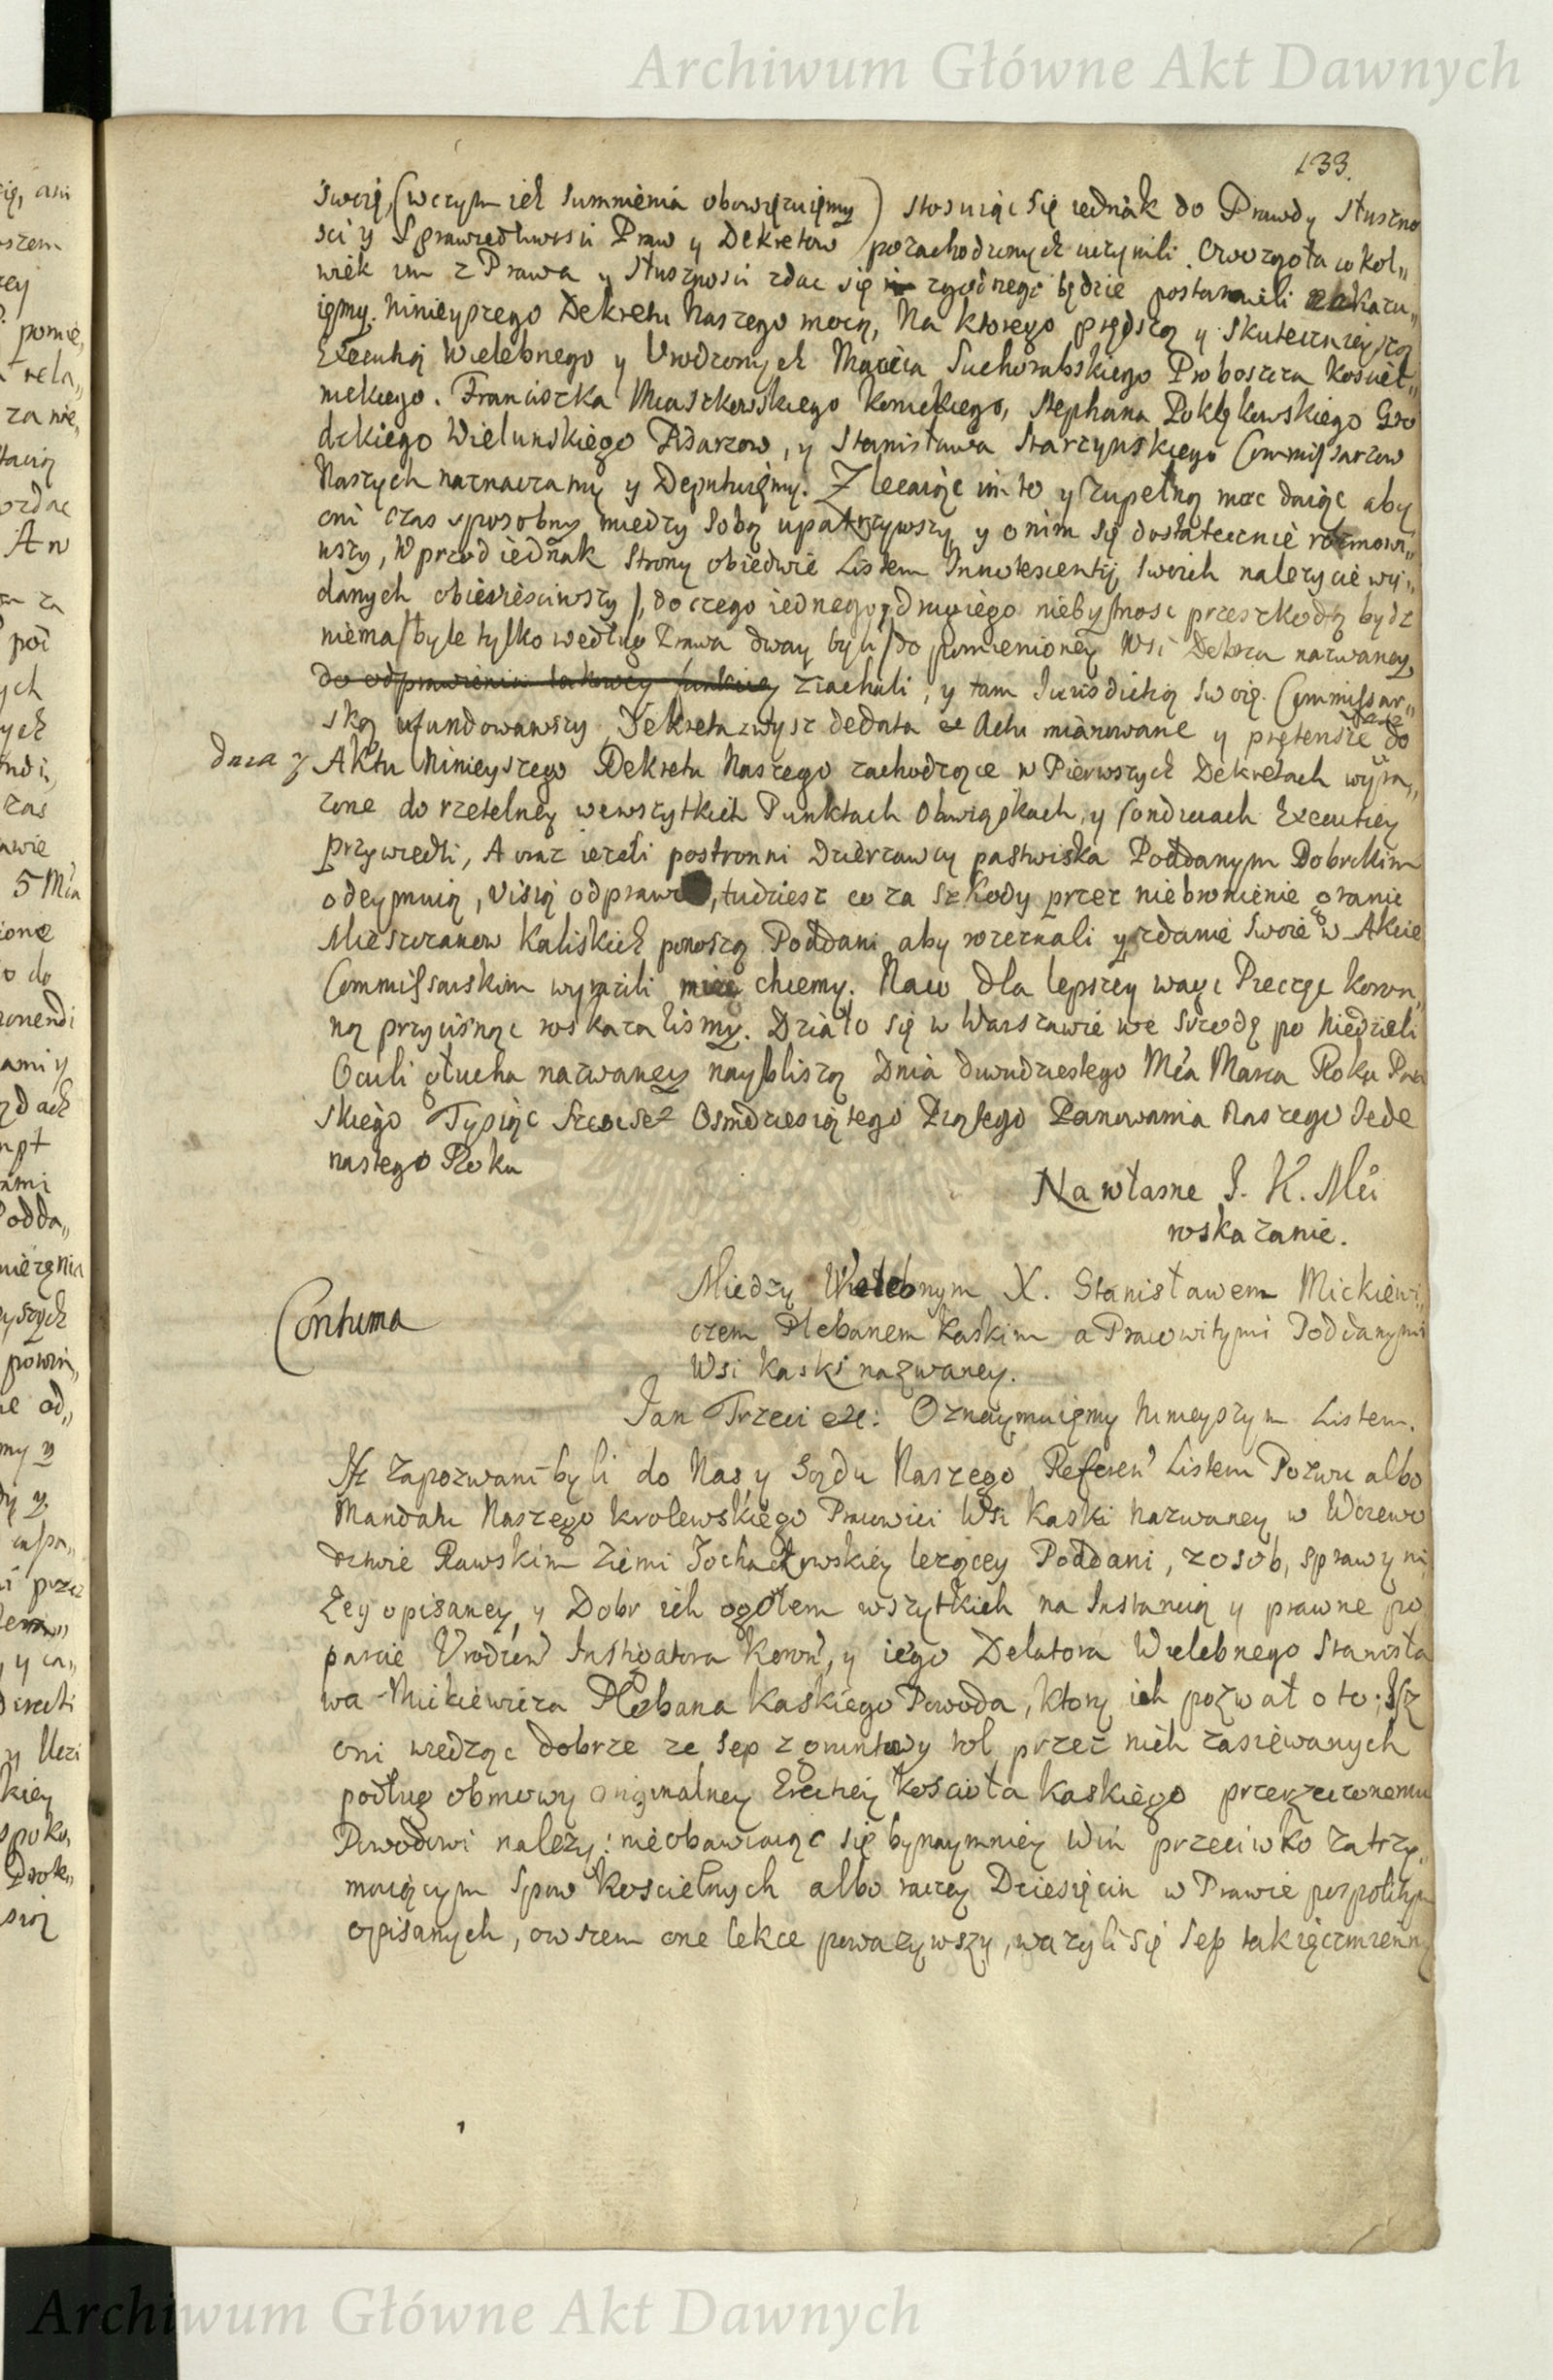 Archiwum Główne Akt Dawnych
133.
swoię, (wczym ich sumnienia obowięzuięmy) stosuiąc się iednak do Prawdy słuszno
sci y Sprawiedliwosci Praw y Dekretow pozachodzonych uczynili. Owo zgoła cokol„
wiek im z Prawa y słusznosci zdac się zgodnego będzie postanowili
ięmy. Ninieyszego Dekretu Naszego mocą, Na ktorego prędszą y skutecznieyszą
Executią Wielebnego y Urodzonych Macieia Suchorabskiego Proboszcza Kosciel„
nickiego. Franciszka Miaszkowskiego Konickiego, Stephana Poklękowskiego Gro
dzkiego Wielunskiego Pisarzow, y Stanisława Starzynskiego Commissarzow
Naszych naznaczamy y Deputuięmy. Zlecaiąc im to y zupełną moc daiąc aby
oni czas sposobny miedzy sobą upatrzywszy y onim się dostatecznie rozmowi„
wszy, Wprzod iednak Strony obiedwie Listem Innotescentij swoich nalezycie wy„
danych obwiesciwszy, do czego iednego y drugiego niebytnosc przeszkodą bydz
niema byle tylko według Prawa dway byli do pomienioney Wsi Debrza nazwaney
do odprawienia takowey funkciey ziachali, y tam Iurisdictią swoię Commissar„
ską ufundowawszy Dekreta zwysz dedata et Actu mianowane y prętensie do
dnia y Aktu Ninieyszego Dekretu Naszego zachodzące w Pierwszych Dekretach wyra„
zone do rzetelney wewszytkich Punktach Obowiązkach, y Conditiach Executiey
przywiedli, A oraz iezeli postronni Dzierzawcy pastwiska Poddanym Dobrckim
odeymuią, tudziesz co za szkody przez niebronienie granic
Mieszczanow Kaliskich ponoszą Poddani aby rozeznali y zdanie swoie w Akcie
Commissarskim wyrazili miec chcemy. Naco dla lepszey wagi Pieczęc Koron„
ną przycisnąc roskazalismy. Działo się w Warszawie we Srzodę po Niedzieli
Oculi głucha nazwaney naybliszą Dnia dwudziestego Mca Marca Roku Pan
skiego Tysiąc Szescset Osmdziesiątego Piątego Panowania Naszego Iede
nastego Roku
Na własne I. K. Mci
roskazanie.
Contuma
Miedzy Wielebnym X. Stanisławem Mickiewi„
czem Plebanem Kaskim a Pracowitymi Poddanymi
Wsi Kaski nazwaney.
Ian Trzeci etc: Oznaymuięmy Ninieyszym Listem.
Isz zapozwani byli do Nas y Sądu Naszego Referen Listem Pozwu albo
Mandatu Naszego Krolewskiego Pracowici Wsi Kaski nazwaney w Woiewo
dztwie Rawskim Ziemi Sochaczewskiey lezącey Poddani, zosob, sprawy ni
zey opisaney, y Dobr ich ogołem wszytkich na Instantią y prawne po
parcie Urodzen Instigatora Koron, y iego Delatora Wielebnego Stanisła
wa Mickiewicza Plebana Kaskiego Powoda, ktory ich pozwał o to: Isz
oni wiedząc dobrze ze sep z gruntowy rol przez nich zasiewanych
podług obmowy originalney Erectiey Koscioła Kaskiego przerzeczonemu
Powodowi nalezy: nieobawiaiąc się bynaymniey Win przeciwko zatrzy„
muiącym Spow Koscielnych albo raczey Dziesięcin w Prawie pospolitym
opisanych, owszem one lekce powazywszy, wazyli się sep tak ięczmienny
Archiwum Główne Akt Dawnych